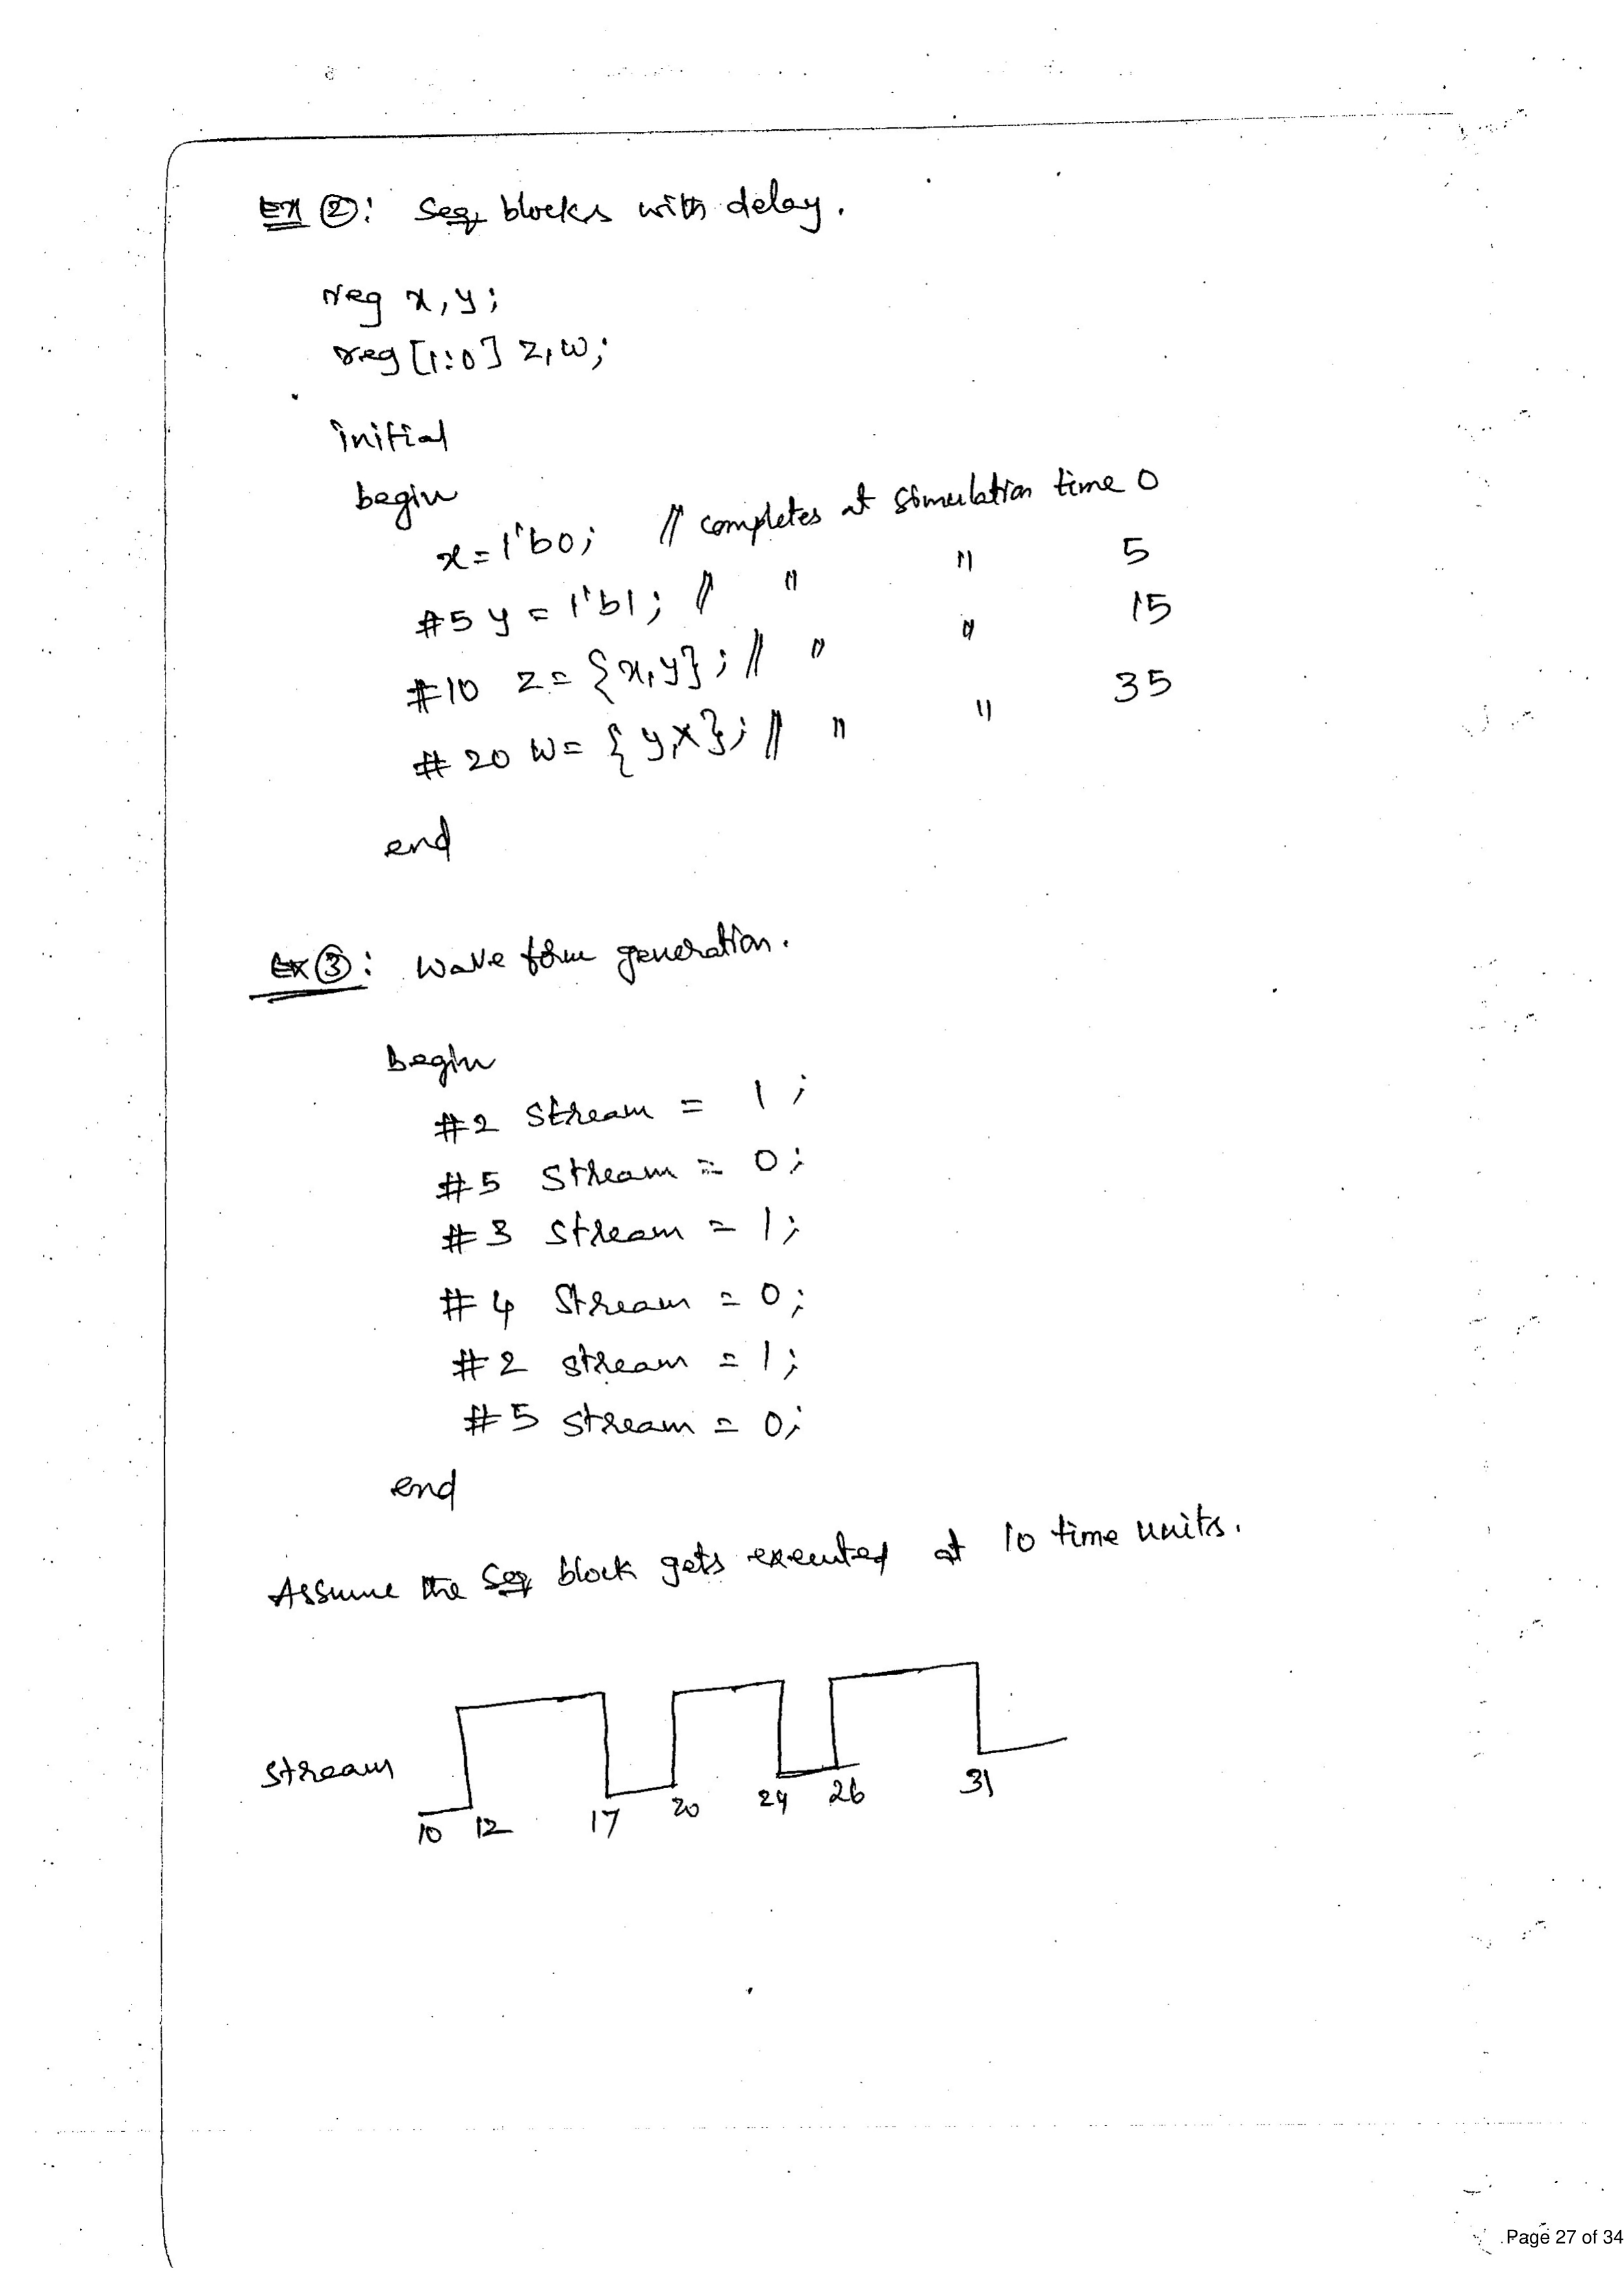 Ex ②: Seq blocks with delay.
reg x, y;
reg [1:0] z, w;
initial
begin
x = 1'b0; // completes at simulation time 0
#5 y = 1'b1; // " " 5
#10 z = {x, y}; // " " 15
#20 w = {y, x}; // " " 35
end
Ex ③: Wave form generation.
begin
#2 stream = 1;
#5 stream = 0;
#3 stream = 1;
#4 stream = 0;
#2 stream = 1;
#5 stream = 0;
end
Assume the seq block gets executed at 10 time units.
stream
10 12 17 20 24 26 31
Page 27 of 34